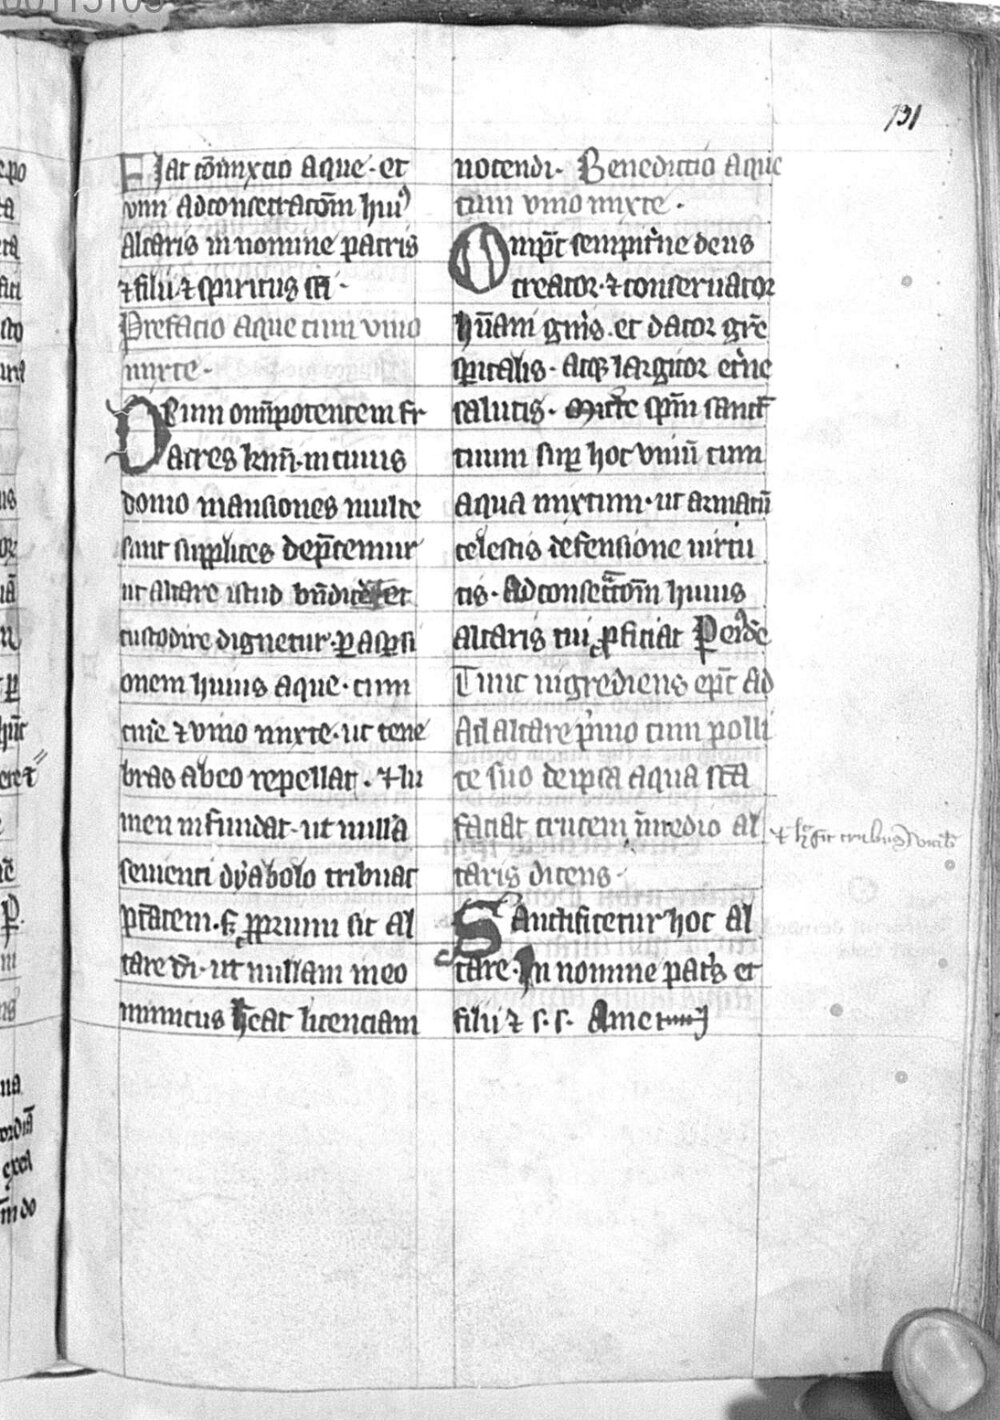 131
FIat co͞mixtio aque · et
vini ad consecratio͞m hui9
altaris in nomine patris
⁊ filii · ⁊ spiritus sc͞i ·
Prefacio aque cum vino
mixte ·
DEum omi͞potentem fr͞
atres kmi͞ · in cuius
domo mansiones multe
sunt supplices dep͞cemur
ut altare istud et
custodire dignetur · ꝑ aspersi
onem huius aque · cum
⁊ vino mixte · ut tene
bras ab eo repellat · ⁊ lu
men infundat · ut nulla͞
seuienti dyabolo tribuat
pt͞atem · sꝫ ꝓprium sit al
tare di͞ · ut nullam ineo
inimicus h͞eat licenciam
nocendi · Benedictio aque
cum vino mixte ·
Omp͞c sempit͛ne deus
creator · ⁊ conseruator
hu͞ani gn͛is · et dator gr͞e
sp͛italis · atqꝫ largitor et͛ne
salutis · sp͞m sanct͞
tuum suꝑ hoc vinu͞ cum
aqua mixtum · ut armatu͞
celestis defensione uirtu
tis · Ad consec͛ato͞m huius
altaris tui ꝓficiat
Tunc ingrediens ep͞c ad
Ad altare p͛mo cum polli
ce suo de ip͞a aqua sc͞a
faciat crucem i͞ medio al
taris dicens ·
SAnctificetur hoc al
tare · In nomine pat͛s et
filii ⁊ s · s · Amen